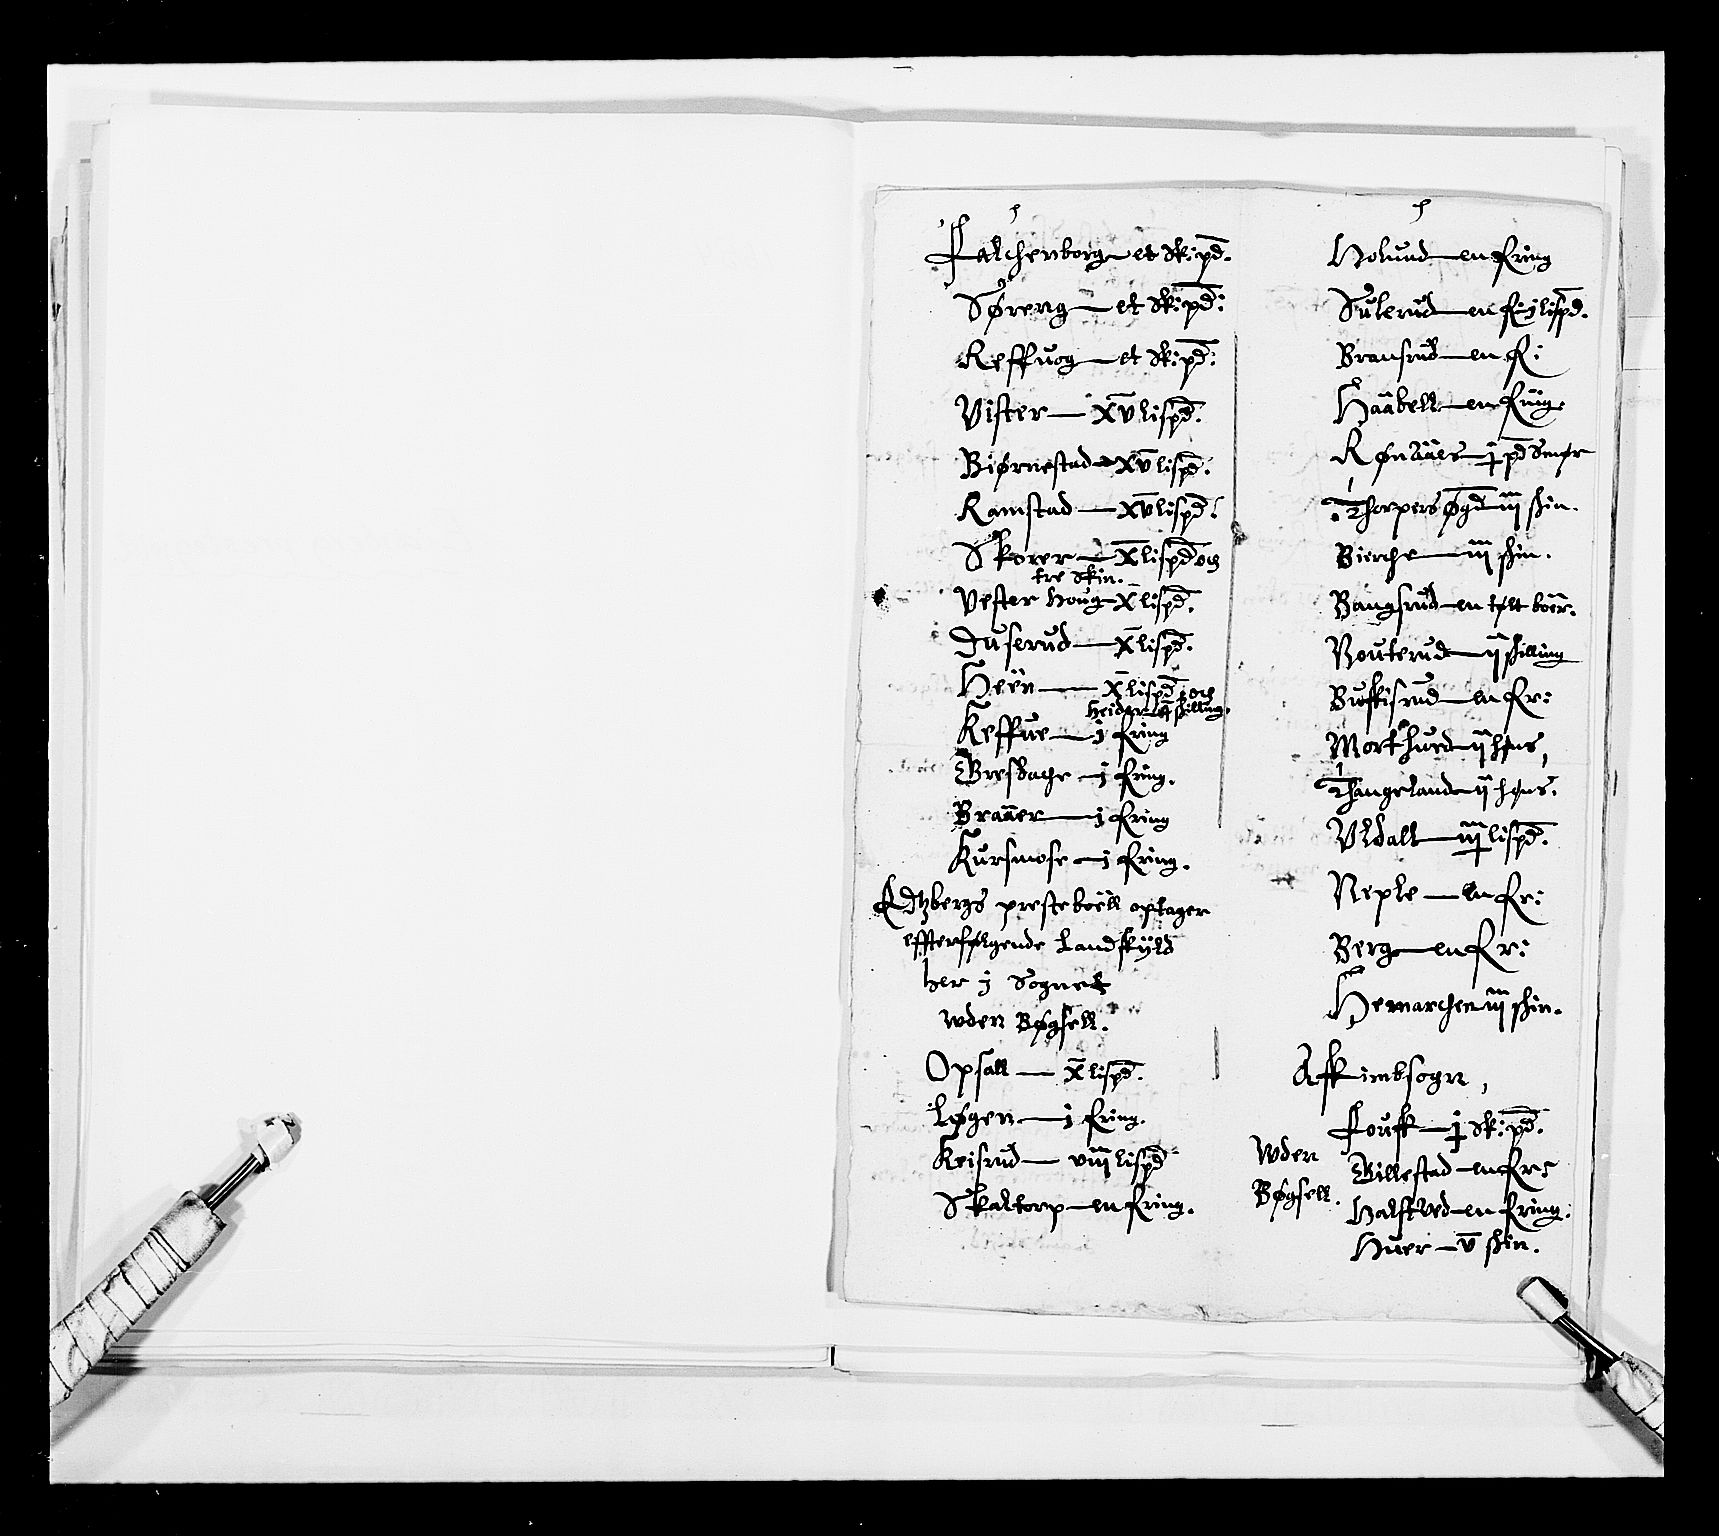 Falchenborg — et Ski:pd.
Sørenng — et Ski:pd:
Reffuog — et Ski:pd:
Vister — xv lispd.
Biørnestad — xv lispd.
Ramstad — xv lispd:
Skorer — x lispd och
tre Skin.
Vester houg — x lispd.
Duserud — x lispd.
Heën — x lispd: och
Heider ij skilling.
Keffue — j fring
Gresdage — j fring.
Braaer — j fring
Kursmose — j fring.
Edtzbergs presteboell optager
effterfølgende Landskyld
her j Sognet
wden Bøgsell.
Opsall — x lispd.
Løgen — j fring.
Keisrud — viij lispd
Skaltorp — en fring.
Holund — en fring
Sulerud — en f: ij lispd.
Bransrud — en f:
Haabell — en fring
Rønaaes — j pd Smør
Thorpers øgd iij skin.
Bierche — iij skin.
Bangsrud — en tølt boer.
Bouterud — ij skilling
Buskisrud — en fr:
Morthued — ij høns,
Thangeland — ij høns.
Vldall — iij lispd.
Neple — en fr:
Berg — en fr:
Hemarchen iij skin.
Aff imbsogn,
Fousk — j Ski:pd.
Wden
Billestad — en fr:
Bøgsell.
Halftved — en fring.
Huer — v skin.